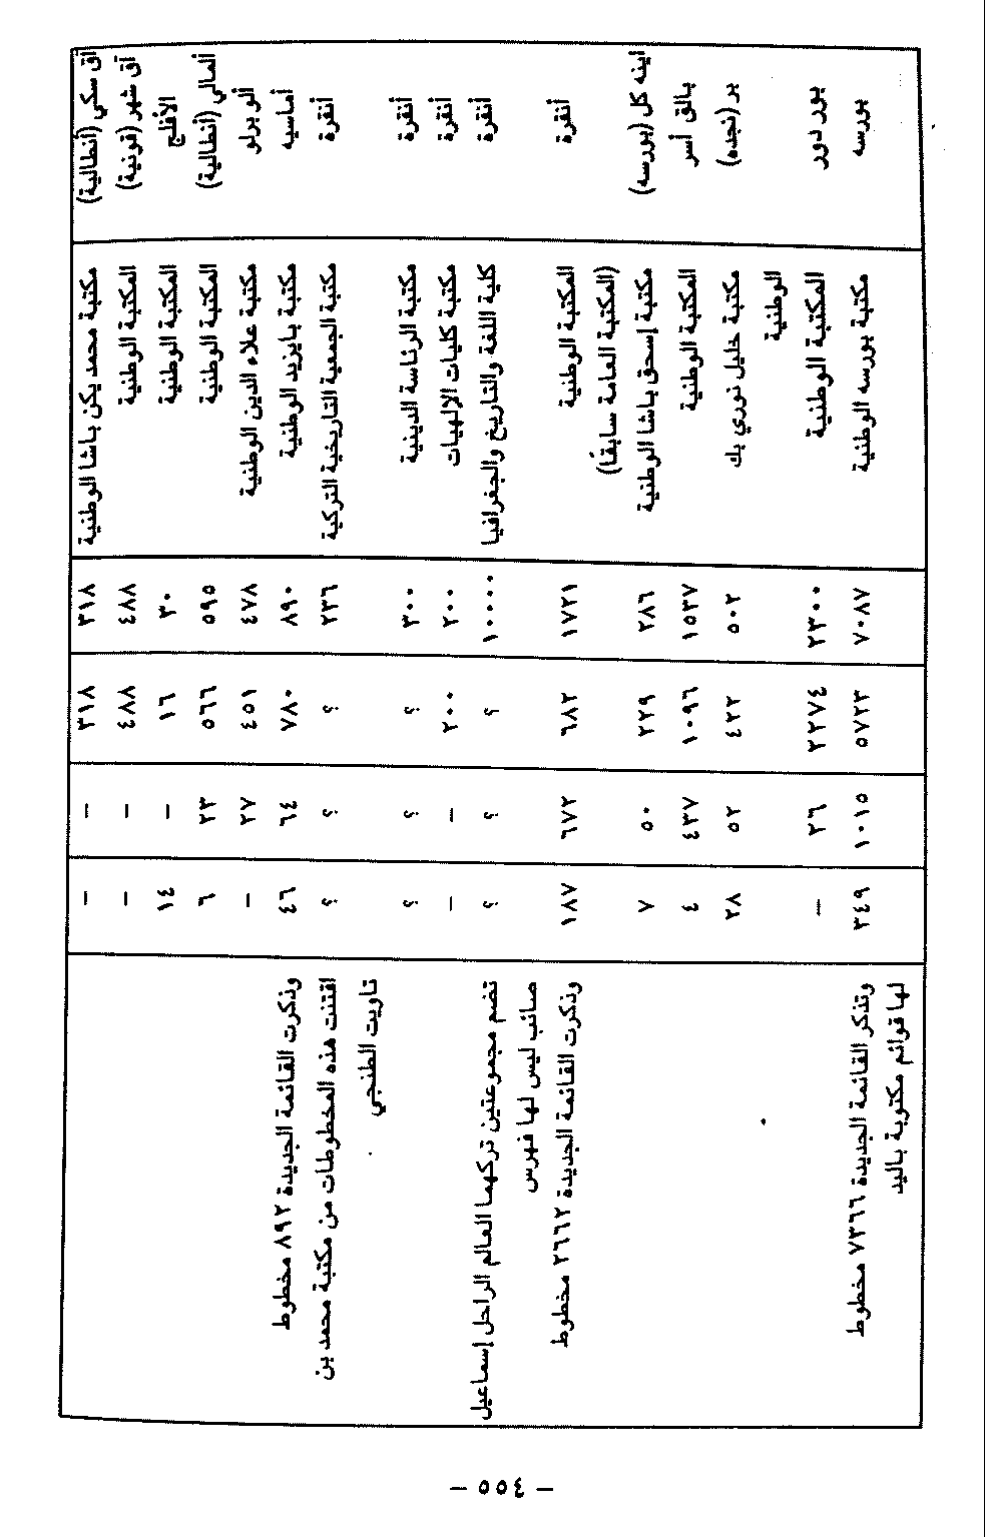 آق سكي (أنطالية) مكتبة محمد يكن باشا الوطنية ٣١٨ ٣١٨ – –
آق شهر (قونية) المكتبة الوطنية ٤٨٨ ٤٨٧ – –
الأفلج المكتبة الوطنية ٣٠ ١٦ – ١٤
ألمالي (أنطالية) المكتبة الوطنية ٥٩٥ ٥٦٦ ٢٣ ٦
ألو برلو مكتبة علاء الدين الوطنية ٤٧٨ ٤٥١ ٢٧ –
أماسيه مكتبة بايزيد الوطنية ٨٩٠ ٧٨٠ ٦٤ ٤٦ وذكرت القائمة الجديدة ٨٩٢ مخطوط
أنقرة مكتبة الجمعية التاريخية التركية ٢٣٦ ؟ ؟ ؟ اقتنت هذه المخطوطات من مكتبة محمد بن
تاويت الطنجي
أنقرة مكتبة الرئاسة الدينية ٣٠٠ ؟ ؟ ؟
أنقرة مكتبة كليات الإلهيات ٢٠٠ ٢٠٠ – –
أنقرة كلية اللغة والتاريخ والجغرافيا ١٠٠٠٠ ؟ ؟ ؟ تضم مجموعتين تركهما العالم الراحل إسماعيل
صائب ليس لها فهرس
أنقرة المكتبة الوطنية ١٧٢١ ٦٨٢ ٦٧٢ ١٨٧ وذكرت القائمة الجديدة ٢٦٦٢ مخطوط
(المكتبة العامة سابقًا)
اينه كل (بورسه) مكتبة إسحق باشا الوطنية ٢٨٦ ٢٢٩ ٥٠ ٧
بالق أسر المكتبة الوطنية ١٥٣٧ ١٠٩٦ ٤٣٧ ٤
بر (نجده) مكتبة خليل نوري بك ٥٠٢ ٤٢٢ ٥٢ ٢٨
الوطنية
بور دور المكتبة الوطنية ٢٣٠٠ ٢٢٧٤ ٢٦ –
بورسه مكتبة بورسه الوطنية ٧٠٨٧ ٥٧٢٣ ١٠١٥ ٣٤٩ وتذكر القائمة الجديدة ٧٣٦٦ مخطوط
لها قوائم مكتوبة باليد
– ٤٥٥ –